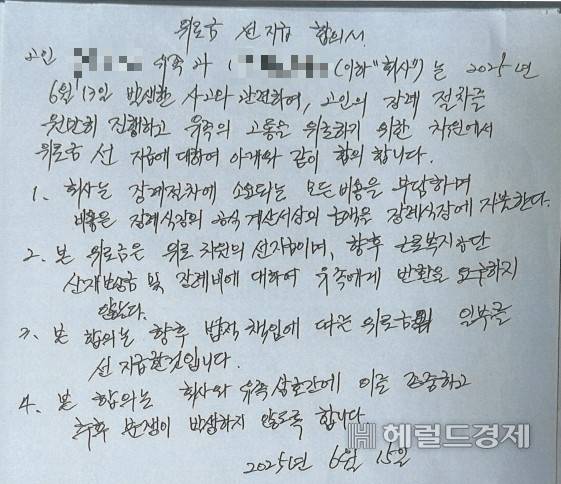 위로금 선지급 합의서
고인 유족과 (이하 "회사")는 2025년
6월 13일 발생한 사고와 관련하여, 고인의 장례 절차를
원만히 진행하고 유족의 고통을 위로하기 위한 차원에서
위로금 선 지급에 대하여 아래와 같이 합의 합니다.
1. 회사는 장례절차에 소요되는 모든비용을 부담하며
비용은 장례식장의 공식 계산서상의 금액을 장례식장에 지불한다.
2. 본 위로금은 위로 차원의 선지급이며, 향후 근로복지공단
산재보상금 및 장례비에 대하여 유족에게 반환을 요구하지
않는다.
3. 본 합의는 향후 법적 책임에 따른 위로금의 일부를
선 지급한것입니다.
4. 본 합의는 회사와 유족 상호간에 이를 존중하고
추후 분쟁이 발생하지 않도록 합니다
헤럴드경제
2025년 6월 15일